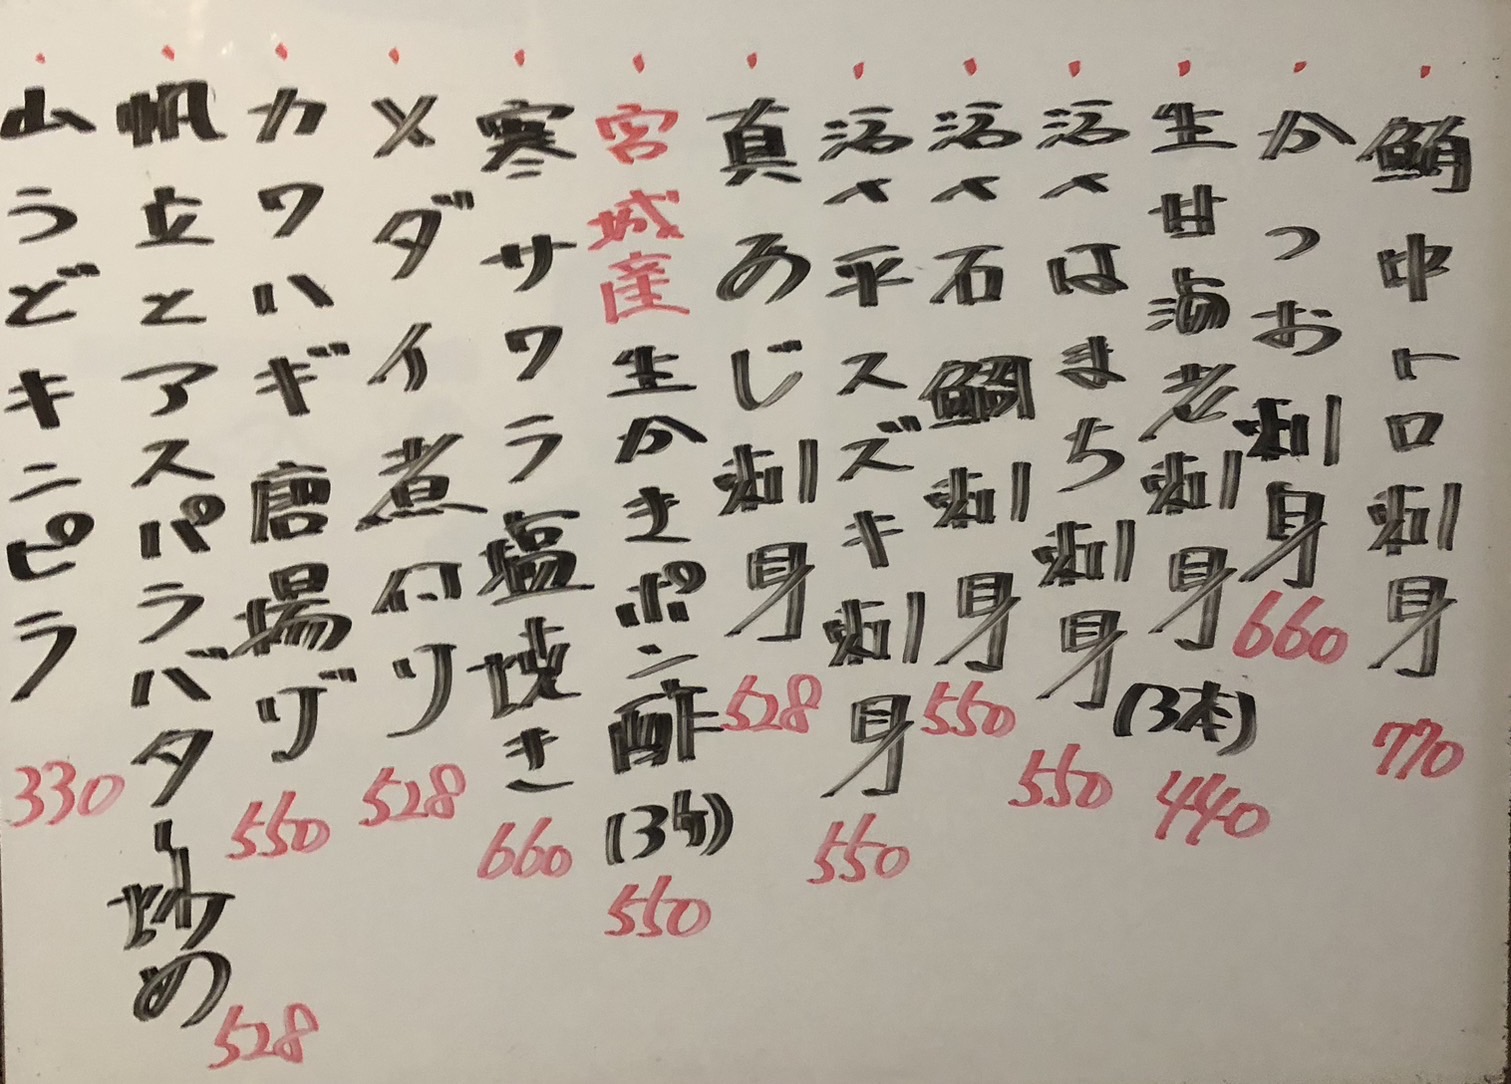 鮪中トロ刺身 770
かつお刺身 660
生甘海老刺身(3本) 440
活〆はまち刺身 550
活〆石鯛刺身 550
活〆平スズキ刺身 550
真あじ刺身 528
宮城産生かきポン酢(3ケ) 550
寒サワラ塩焼き 660
メダイ煮付リ 528
カワハギ唐揚げ 550
帆立とアスパラバター炒め 528
山うどキンピラ 330